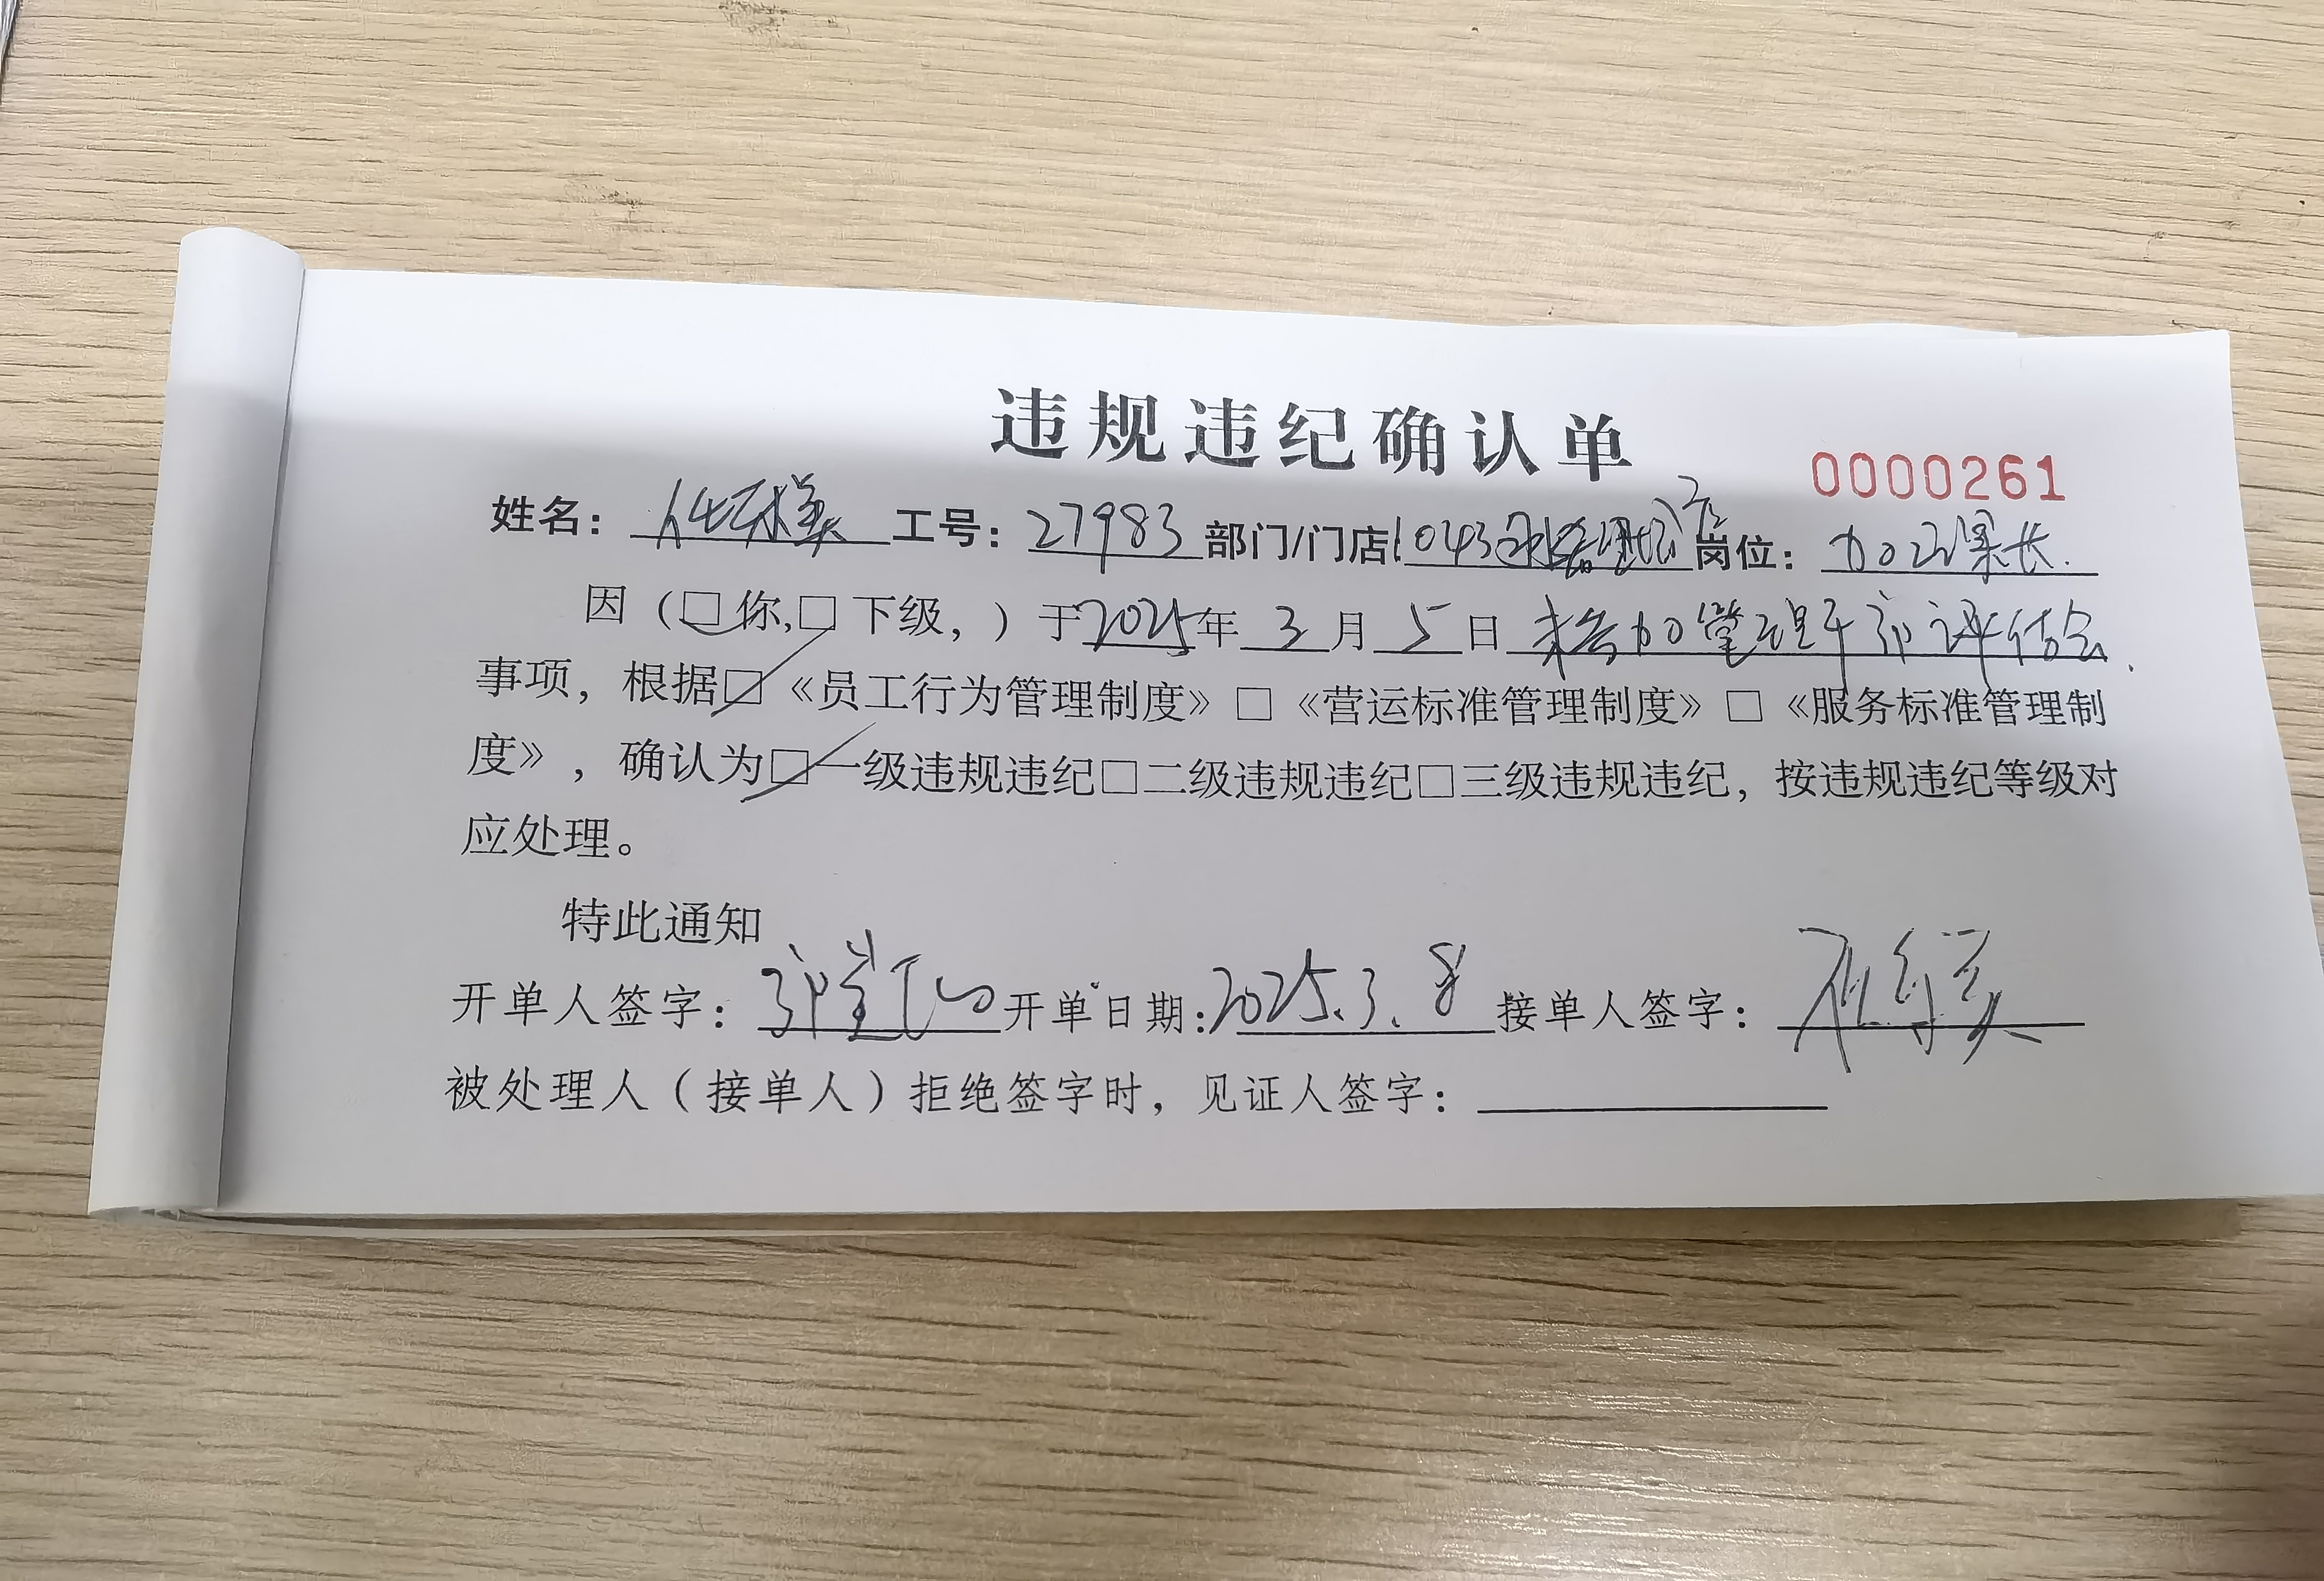 违规违纪确认单
0000261
姓名： 工号：27983 部门/门店：1043 岗位：加工课长.
因（□你,□下级，）于2025年3月5日未参加管理干部评估会.
事项，根据□《员工行为管理制度》□《营运标准管理制度》□《服务标准管理制
度》，确认为□一级违规违纪□二级违规违纪□三级违规违纪，按违规违纪等级对
应处理。
特此通知
开单人签字： 开单日期:2025.3.8 接单人签字：
被处理人（接单人）拒绝签字时，见证人签字：